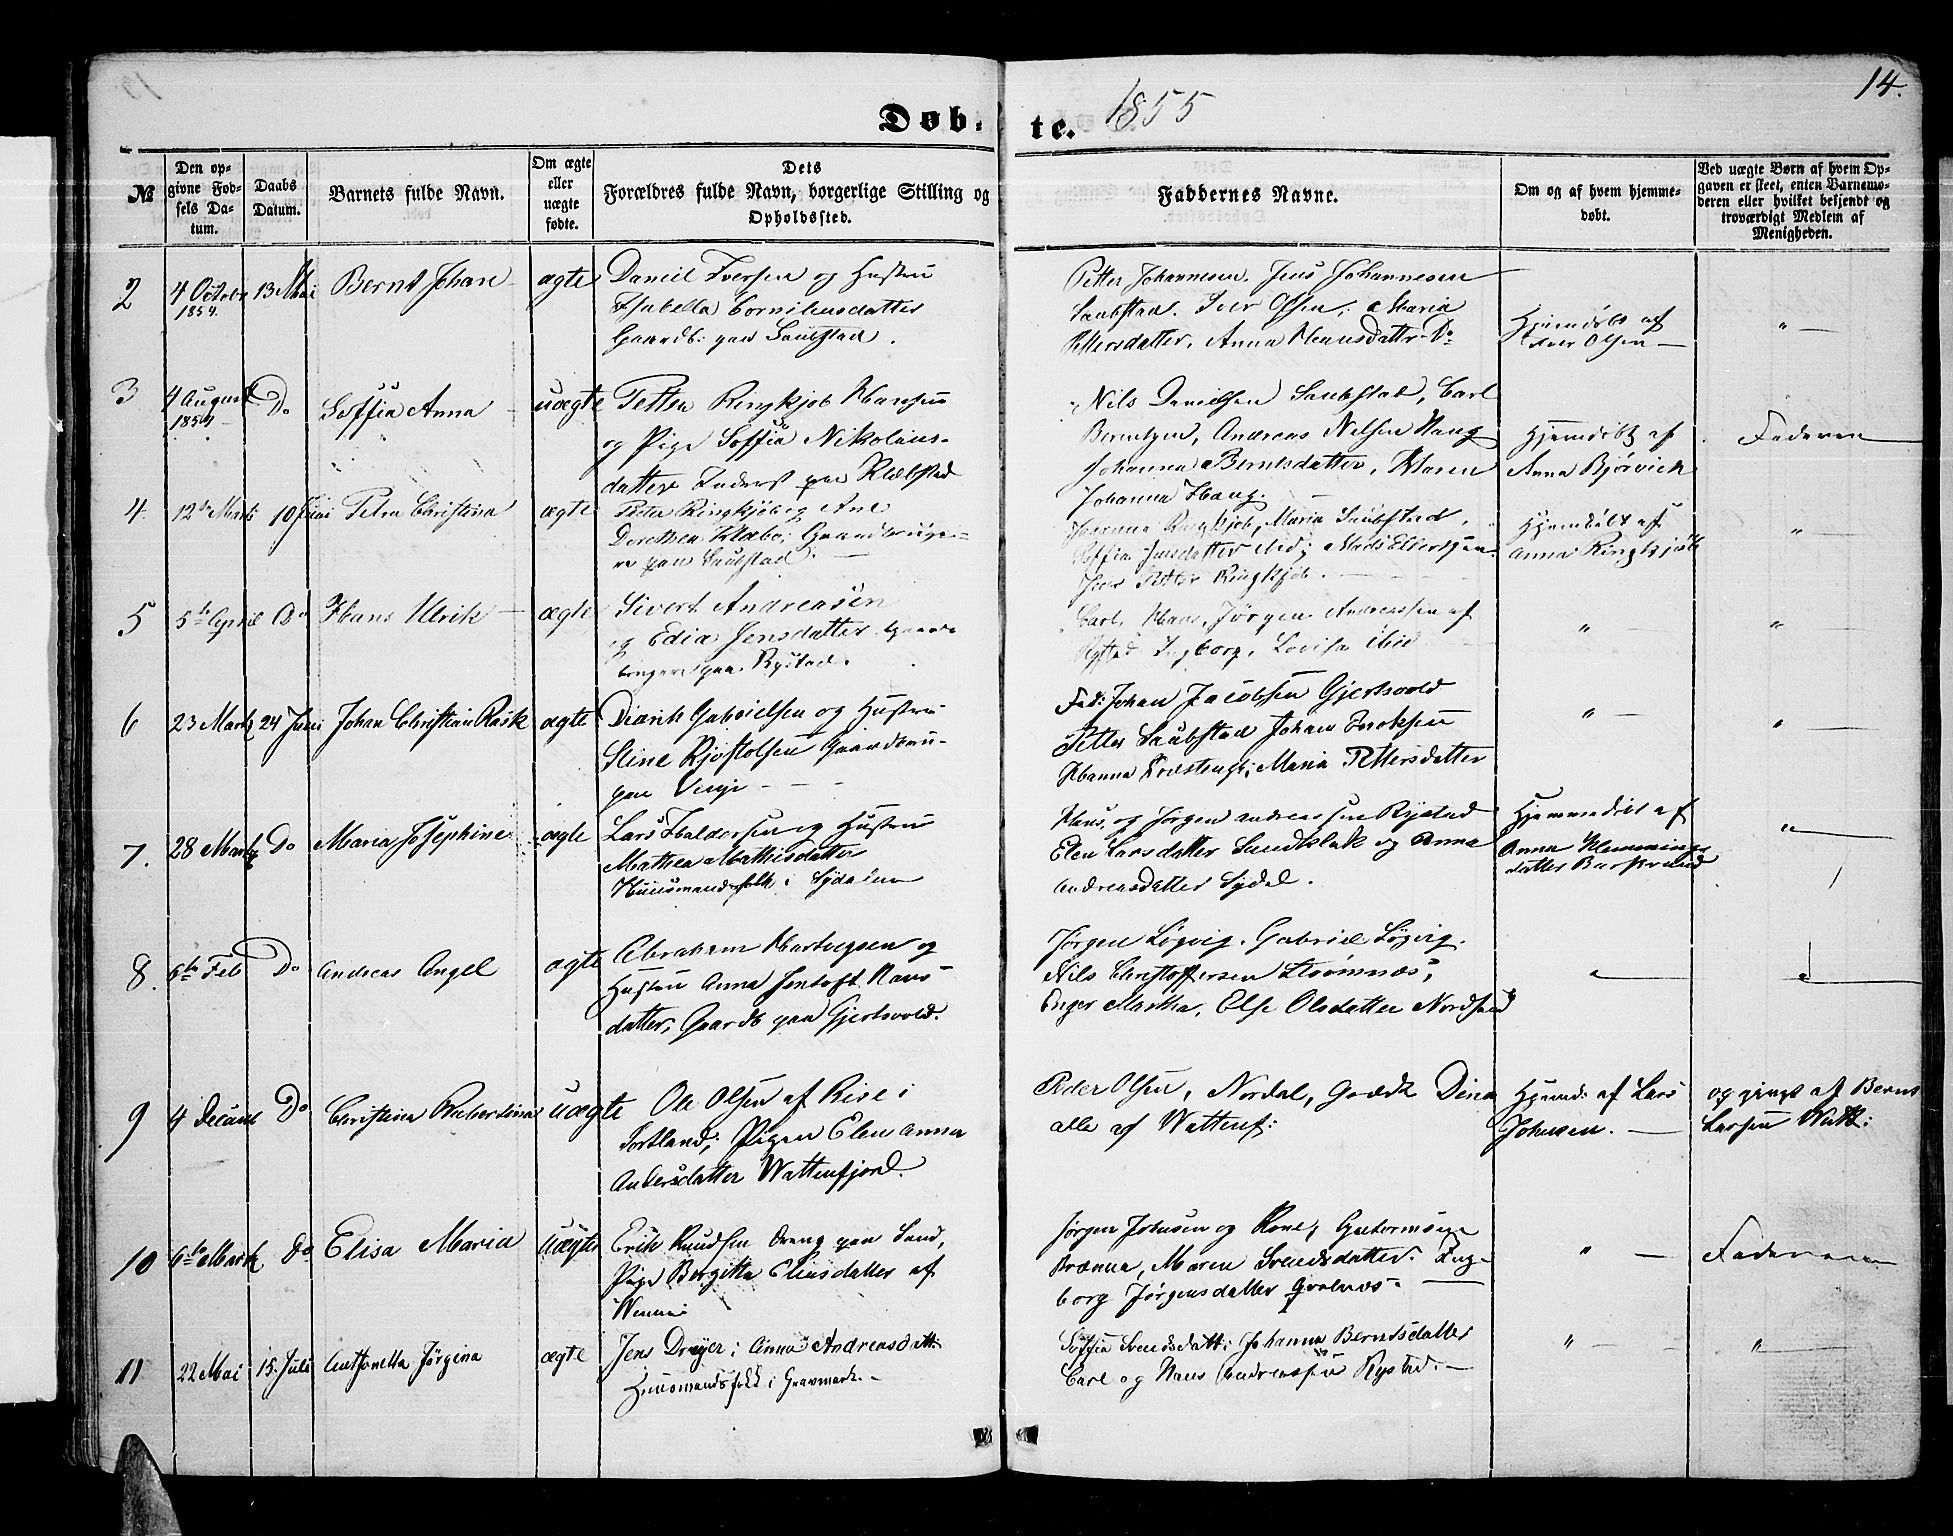 14.
Døb- te. 1855
№
Den opgivne Fødsels Datum.
Daabs Datum.
Barnets fulde Navn.
Om ægte eller uægte fødte.
Dets Forældres fulde Navn, borgerlige Stilling og Opholdssted.
Faddernes Navne.
Om og af hvem hjemmedøbt.
Ved uægte Børn af hvem Opgaven er skeet, enten Barnemoderen eller hvilket bekjendt og troværdigt Medlem af Menigheden.
2 4 Octobr 1854. 13 Mai Bernt Johan ægte
Daniel Iversen og Hustru
Isabella Cornilius datter
Gaardb: paa Saubstad.
Petter Johannesen. Jens Johannesen
Saubstad. Iver Olsen, Maria
Pettersdatter, Anna Hansdatter Do
Hjemdøbt af
Iver Olsen —
" —
3 4 August 1854 Do Soffia Anna uægte
Petter Ringkjøb Hansen
og Pige Soffia Nikolaus-
datter Inderst paa Klæbstad
Nils Danielsen Saubstad, Carl
Berntzen, Andreas Nilsen Haug
Johanna Berntsdatter, Maren
Johanna Haug.
Hjemdøbt af
Anna Bjørvick
Faderen
4. 12te Marts 10 Juni Petra Christina ægte
Peter Ringkjøb og Ane
Dorothea Klæbo, Gaardbruge-
re paa Saubstad.
Johanna Ringkjøb, Maria Saubstad,
Soffia Jensdatter ibid; Mads Ellertsen
Jens Petter Ringkjøb.
Hjemdøbt af
Anna Ringkjøb
" —
5 5te April Do Hans Ulrik — ægte
Sivert Andreasen
og Edia Jensdatter Gaard-
brugere paa Rystad.
Carl, Hans, Jørgen Andreassen af
Rystad Ingborg, Lovisa ibid
" —
" —
6 23 Marts 24 Juni Johan Christian Rask ægte
Didrik Gabrielsen og Hustru
Stine Kjøstolsen Gaardbru-
paa Venje
Fad: Johan Jacobsen Gjertsvold
Petter Saubstad Johan Enoksen
Hanna Præsteng; Maria Pettersdatter
" —
" —
7. 28 Marts Do Maria Josephine ægte
Lars Haldorsen og Hustru
Mathea Mathisdatter
Huusmandsfolk i Sydalen
Hans, og Jørgen andreassen Rystad
Elen Larsdatter Sandklak og Anna
Andreasdatter Sydal.
Hjemmedøbt af
Anna Hemmings
datter Barstrand
" —
8. 6te Feb Do Andreas Angel ægte
Abraham Hartvigsen og
Hustru Anna Jentoft Hans-
datter, Gaardb paa Gjertsvold.
Jørgen Løgvig. Gabriel Løgvig.
Nils Christoffersen Strømnæs,
Inger Martha, Else Olsdatter Nordsand
" —
9 4 Decemb Do Christina Hubertina uægte
Ole Olsen af Rise i
Sortland; Pigen Elen Anna
Andersdatter Wattenfjord.
Peder Olsen, Nordal, Dina
alle af Wattenf:
Hjemd: af Lars
Johnsen. —
og givet af Bernt
Larsen Watt:
10 6te Marts Do Elisa Maria uægte
Erik Knudsen dreng paa Sand,
Pige Bergitta Eliasdatter af
Jørgen Johnsen og Kone,
Brænna, Maren Svendsdatter. Ing-
borg Jørgensdatter
" —
Faderen
11 22 Mai 15. Juli Antonetta Jørgina ægte
Jens Dreyer; Anna Andreasdatt:
Huusmandsfolk i Gravmark. —
Soffia Svendsdatt; Johanna Berntsdatter
Carl og Hans Andreassen Rystad. —
" —
" —